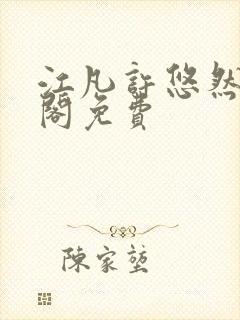 江凡許悠然
閣免費
陳家堃